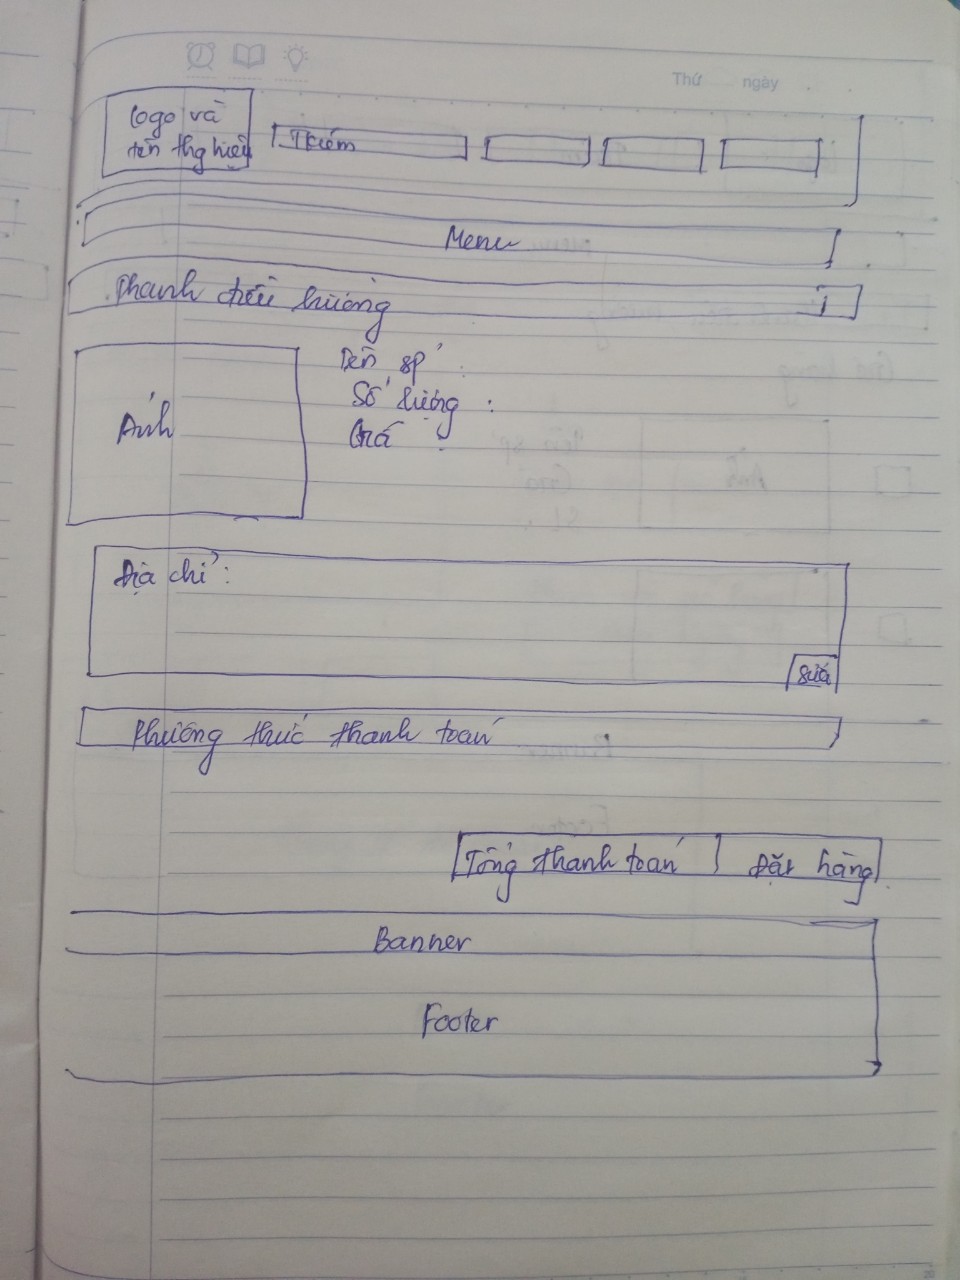 Thứ ngày
Logo và
tên thg hiệu
Tkiếm
Menu
Thanh điều hướng
Ảnh
Tên sp :
Số lượng :
Giá
Địa chỉ :
Sửa
Phương thức thanh toán
Tổng thanh toán Đặt hàng
Banner
Footer